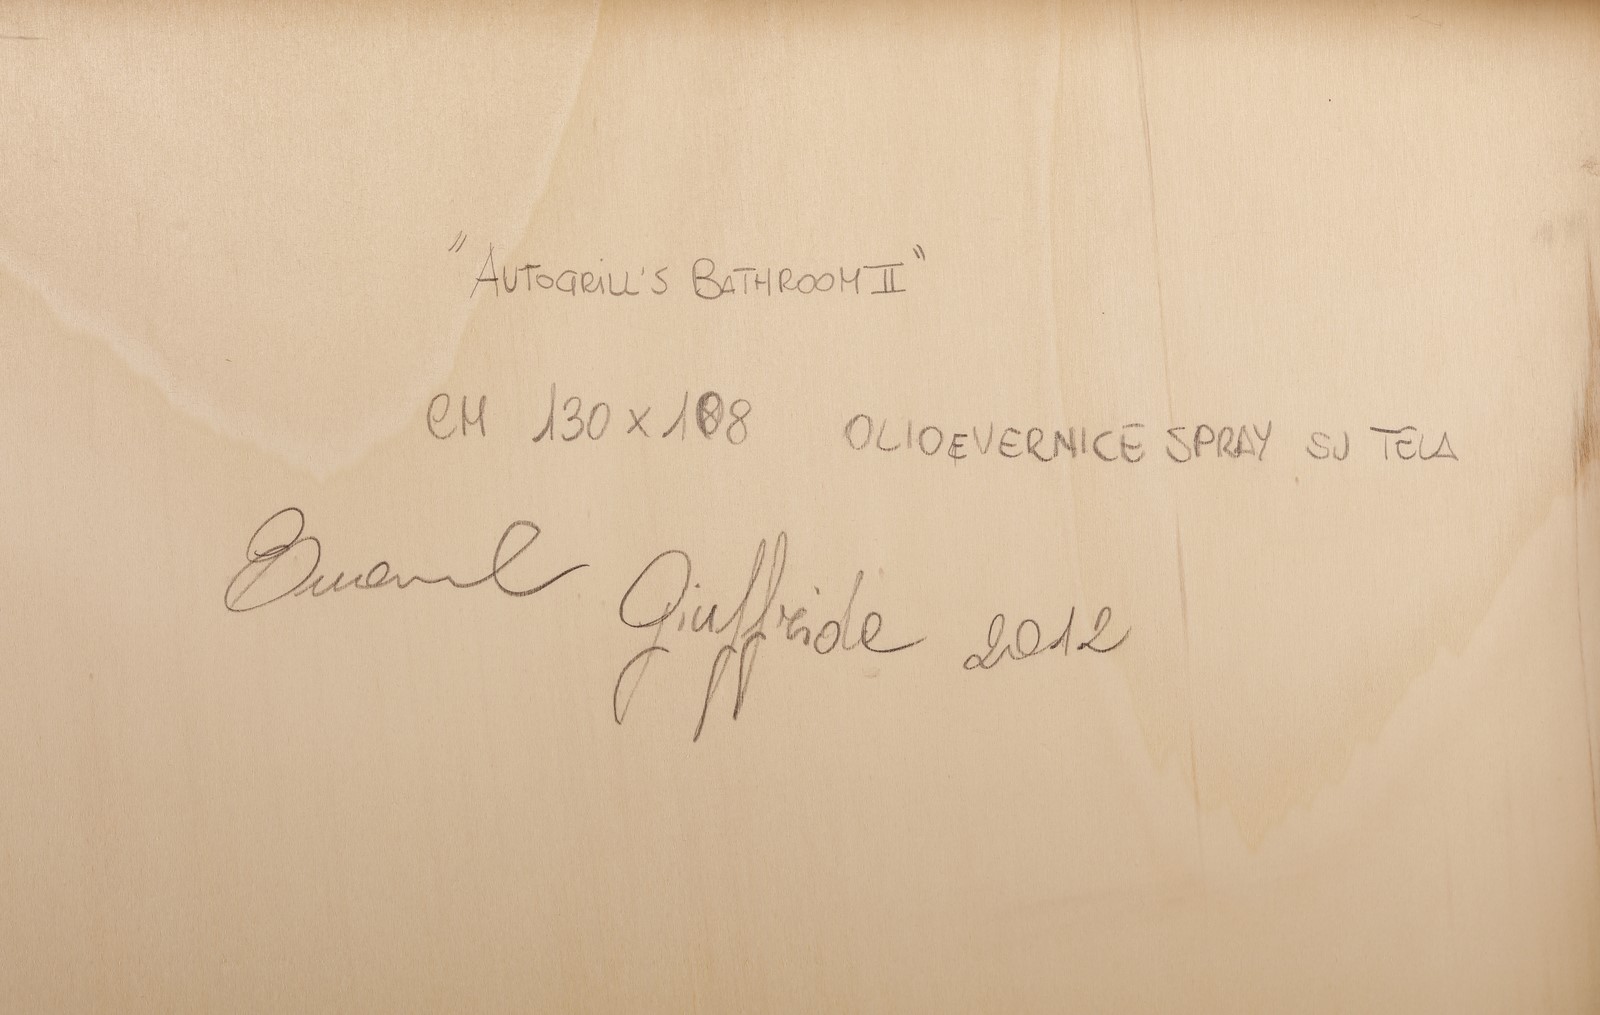 "AUTOGRILL'S BATHROOM II"
CM 130 x 108 OLIO E VERNICE SPRAY SU TELA
Emanuele Giuffrida 2012